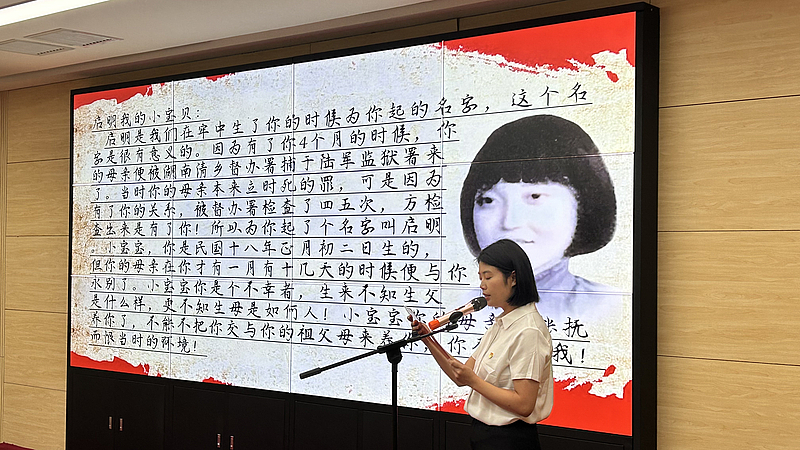 启明我的小宝贝：
启明是我们在牢中生了你的时候为你起的名字，这个名
字是很有意义的。因为有了你4个月的时候，你
的母亲便被湖南清乡督办署捕于陆军监狱署来
了。当时你的母亲本来立时死的罪，可是因为
有了你的关系，被督办署检查了四五次，方检
查出来是有了你！所以为你起了个名字叫启明
小宝宝，你是民国十八年正月初二日生的，
但你的母亲在你才有一月有十几天的时候便与你
永别了。小宝宝你是个不幸者，生来不知生父
是什么样，更不知生母是如何人！小宝宝你的母
养你了，不能不把你交与你的祖父母来养你，你
而恨当时的环境！